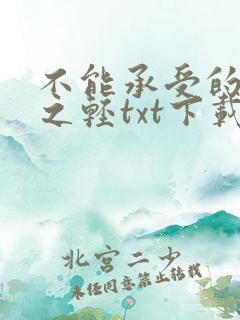 不能承受的
之轻txt下載
北宫二少
未经同意禁止转载